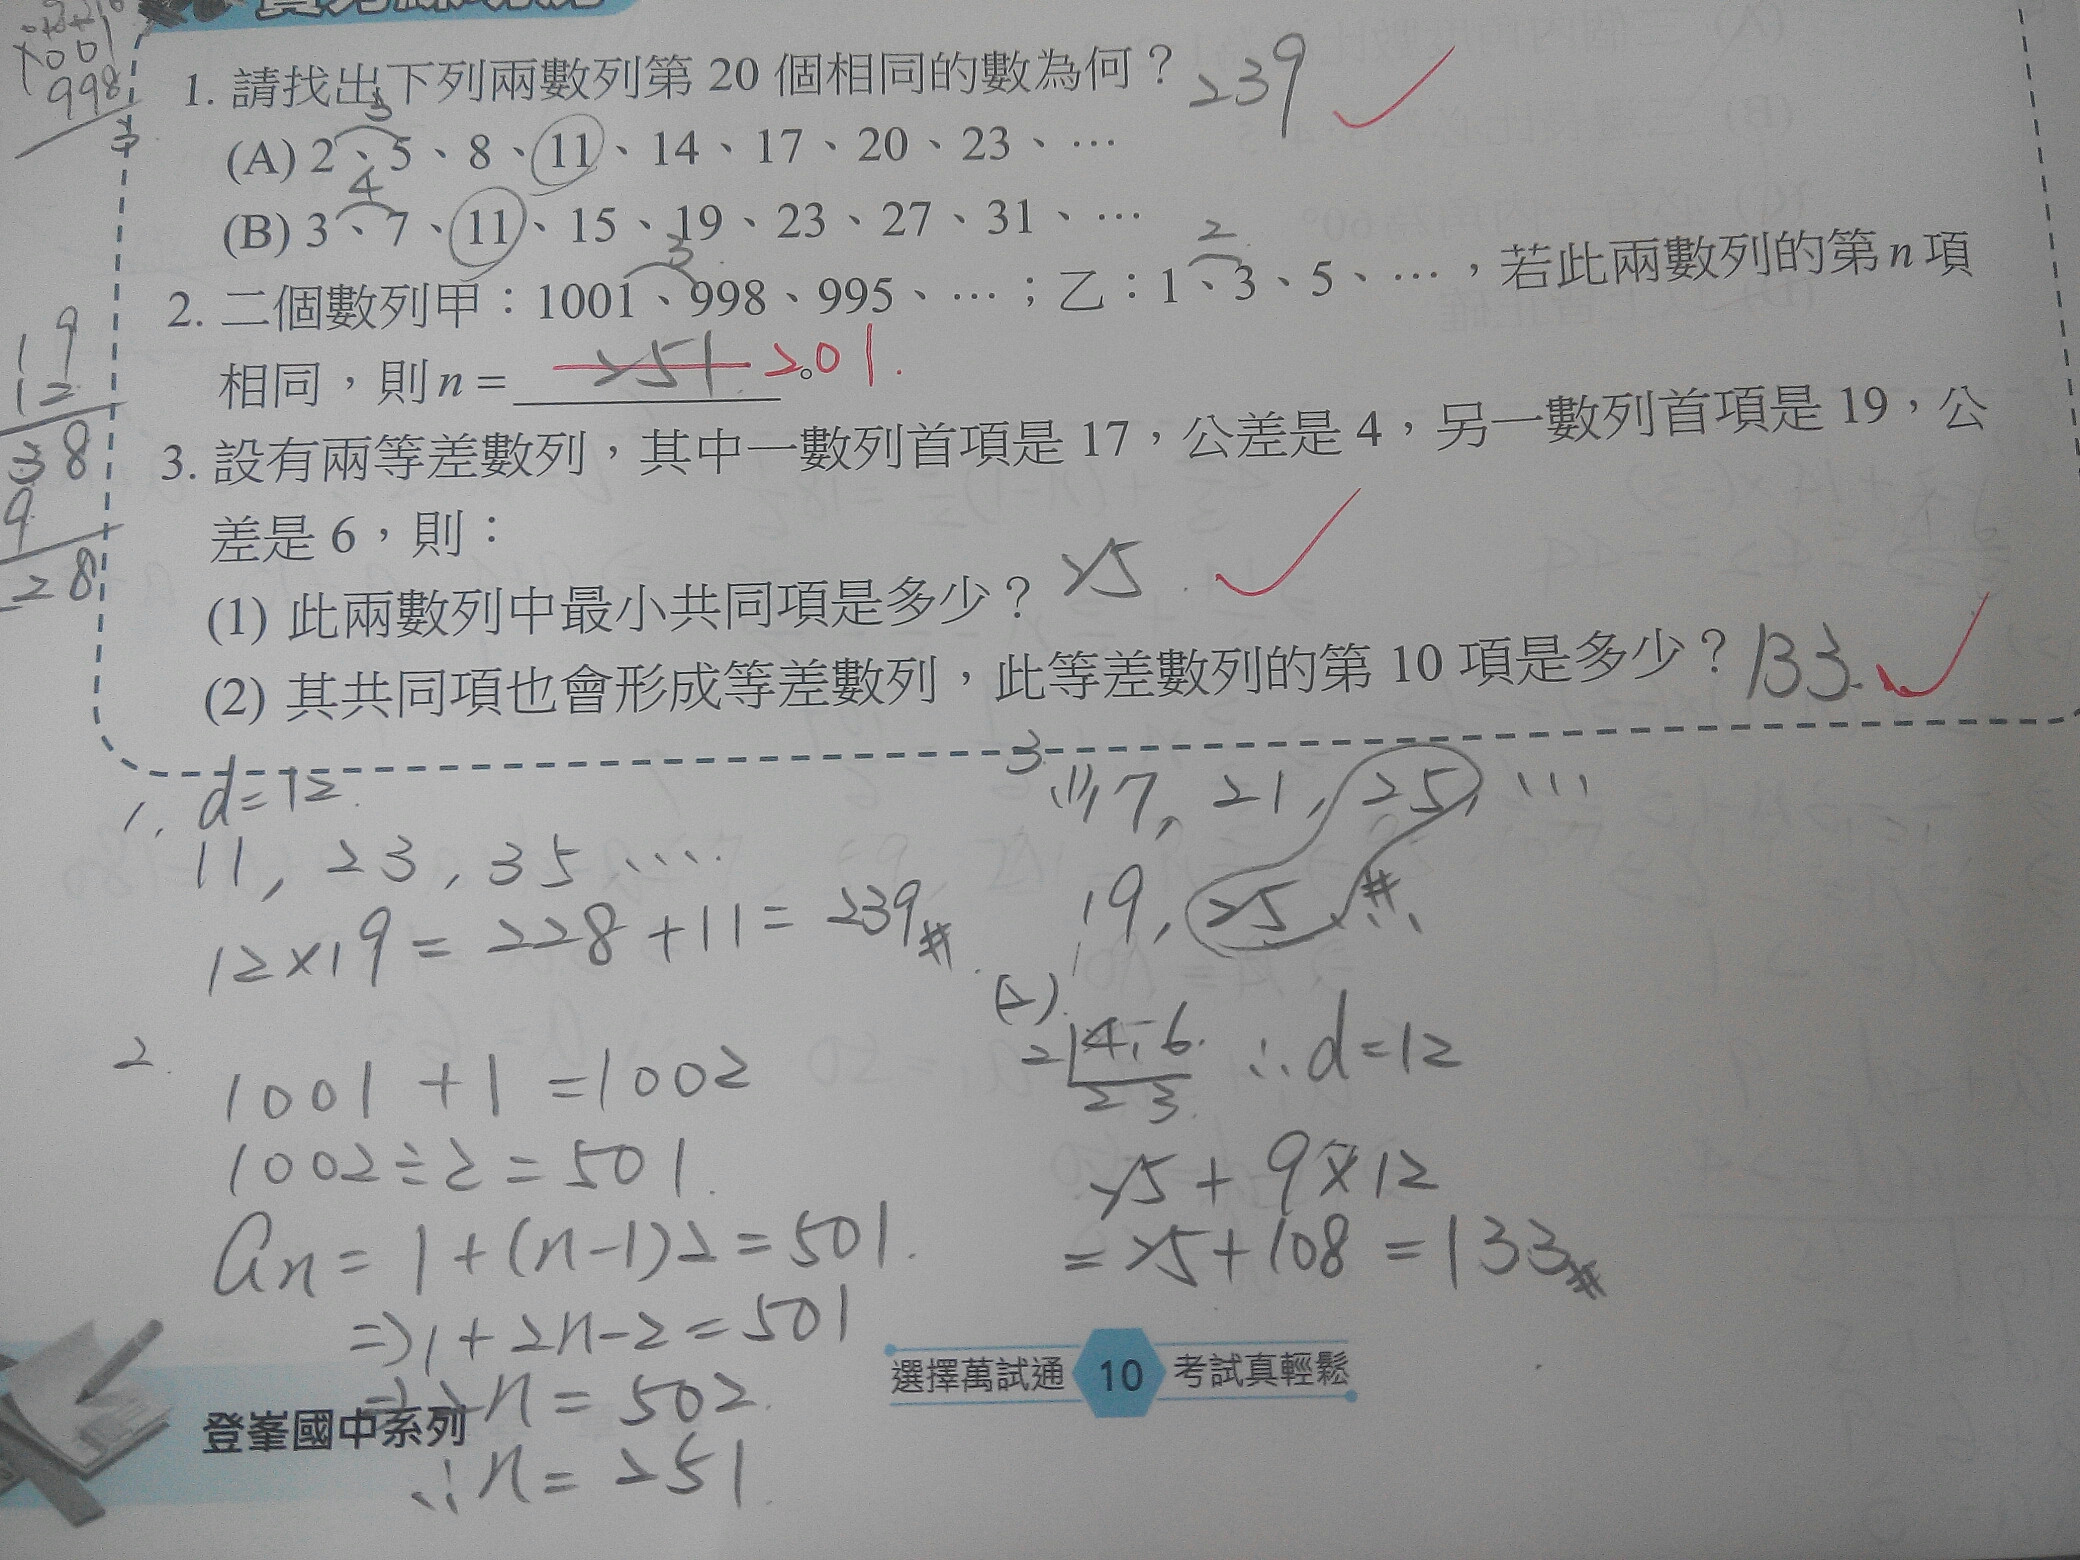 1. 請找出下列兩數列第 20 個相同的數為何？ 239
3
(A) 2、5、8、11、14、17、20、23、…
4
(B) 3、7、11、15、19、23、27、31、…
3 2
2. 二個數列甲：1001、998、995、…；乙：1、3、5、…，若此兩數列的第 n 項
相同，則 n = 251 201.。
3. 設有兩等差數列，其中一數列首項是 17，公差是 4，另一數列首項是 19，公
差是 6，則：
(1) 此兩數列中最小共同項是多少？ 25
(2) 其共同項也會形成等差數列，此等差數列的第 10 項是多少？ 133
1001
998
19
12
38
9
28
1. d=12
11, 23, 35 ....
12×19 = 228 + 11 = 239#
2. 1001 + 1 = 1002
1002÷2 = 501.
an = 1 + (n-1)2 = 501.
⇒1 + 2n-2 = 501
⇒2n = 502.
∴n = 251.
3.
(1) 17, 21, 25, ...
19, 25, ...
#
(2).
2 4, 6. ∴d=12
2 3.
25 + 9×12
= 25 + 108 = 133#
選擇萬試通 10 考試真輕鬆
登峯國中系列